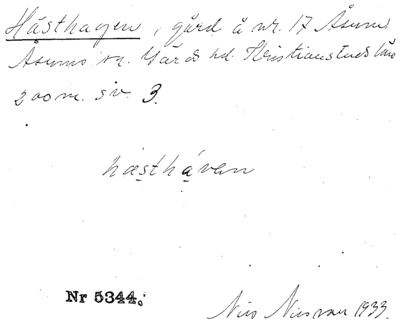 Hästhagen, gård å nr. 17 Åsum,
Åsums sn. Gärds hd. Kristianstads län
200 m. sv. 3.
hästhávan
Nr 5344.
Nils Nilsson 1933.